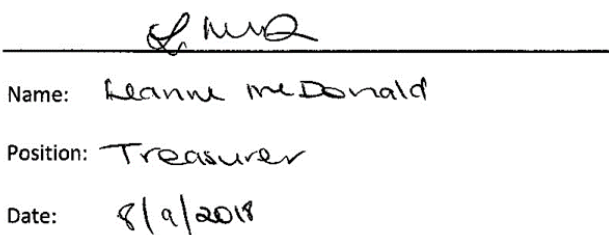 L. McD
Name: Leanne McDonald
Position: Treasurer
Date: 8/9/2018